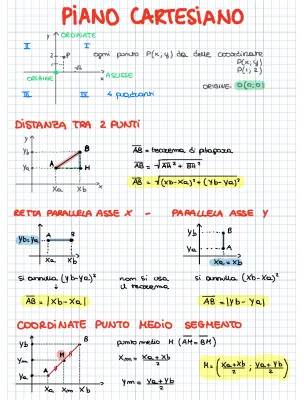 PIANO CARTESIANO
ORDINATE
II I
2 P
ogni punto P(x;y) ha delle coordinate
P(x;y)
P(1;2)
ORIGINE 1 ASCISSE
ORIGINE: O(0;0)
III IV 4 quadranti
DISTANZA TRA 2 PUNTI
y
yb B
ya A H
xa xb x
AB = teorema di pitagora
AB = √AH² + BH²
AB = √(xb-xa)² + (yb-ya)²
RETTA PARALLELA ASSE X - PARALLELA ASSE Y
yb=ya A B
xa xb
yb B
ya A
xa = xb
si annulla (yb-ya)² non si usa il teorema si annulla (xb-xa)²
AB = |xb-xa| AB = |yb-ya|
COORDINATE PUNTO MEDIO SEGMENTO
yb B
ym M
ya A
xa xm xb
punto medio M (AM=BM)
xm = xa+xb/2
ym = ya+yb/2
M = (xa+xb/2 ; ya+yb/2)